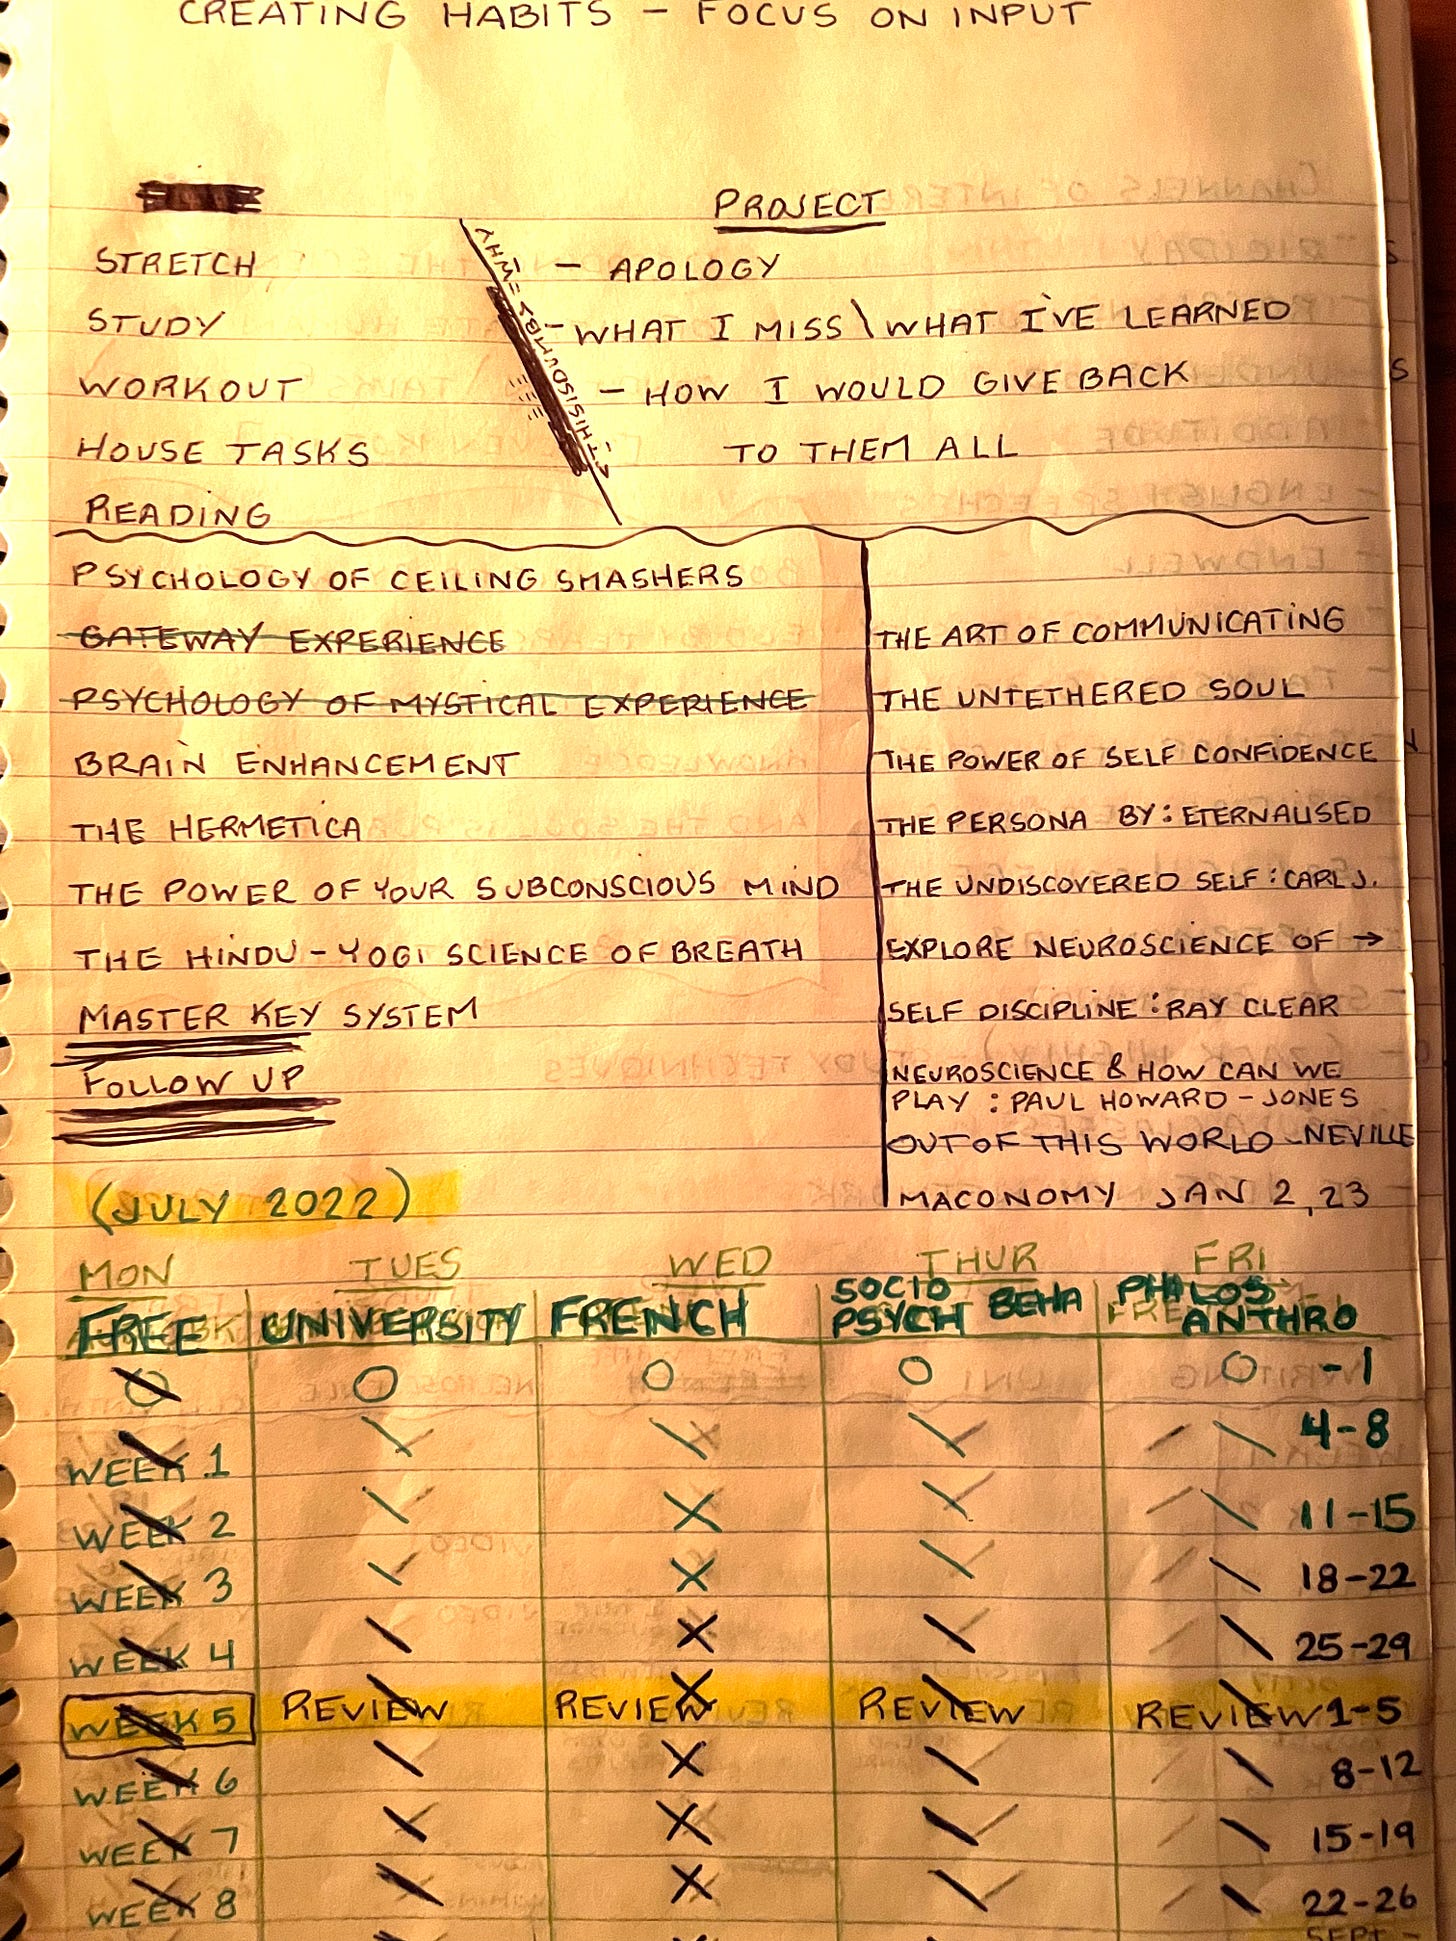 CREATING HABITS - FOCUS ON INPUT
PROJECT
STRETCH
STUDY
WORKOUT
HOUSE TASKS
READING
WHY
- APOLOGY
- WHAT I MISS \ WHAT I'VE LEARNED
- HOW I WOULD GIVE BACK
TO THEM ALL
PSYCHOLOGY OF CEILING SMASHERS
GATEWAY EXPERIENCE
PSYCHOLOGY OF MYSTICAL EXPERIENCE
BRAIN ENHANCEMENT
THE HERMETICA
THE POWER OF YOUR SUBCONSCIOUS MIND
THE HINDU - YOGI SCIENCE OF BREATH
MASTER KEY SYSTEM
FOLLOW UP
THE ART OF COMMUNICATING
THE UNTETHERED SOUL
THE POWER OF SELF CONFIDENCE
THE PERSONA BY: ETERNALISED
THE UNDISCOVERED SELF: CARL J.
EXPLORE NEUROSCIENCE OF →
SELF DISCIPLINE: RAY CLEAR
NEUROSCIENCE & HOW CAN WE
PLAY: PAUL HOWARD - JONES
OUT OF THIS WORLD - NEVILLE
MACONOMY JAN 2, 23
(JULY 2022)
MON TUES WED THUR FRI
FREE UNIVERSITY FRENCH SOCIO PSYCH BEHA PHILOS ANTHRO
O O O O O - 1
WEEK 1 4-8
WEEK 2 11-15
WEEK 3 18-22
WEEK 4 25-29
WEEK 5 REVIEW REVIEW REVIEW REVIEW 1-5
WEEK 6 8-12
WEEK 7 15-19
WEEK 8 22-26
SEPT -